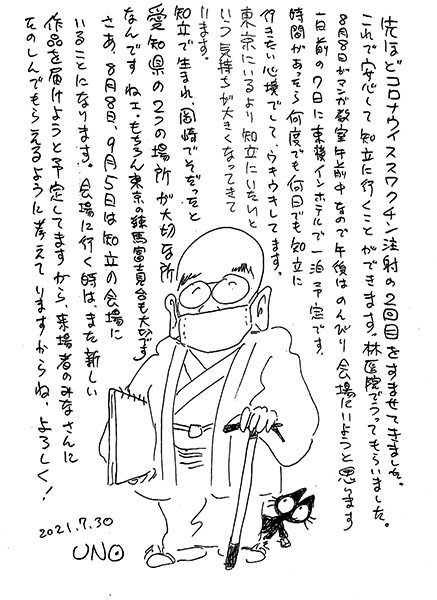 先ほどコロナウイススワクチン注射の2回目をすませてきました。
これで安心して知立に行くことができます。林医院でうってもらいました。
8月8日がマンガ教室午前中なので午後はのんびり会場にいようと思います
一日前の7日に東横インホテルで一泊予定です。
時間があったら何度でも何日でも知立に
行きたい心境でして、ウキウキしてます。
東京にいるより知立にいたいと
いう気持ちが大きくなってきて
います。
知立で生まれ、岡崎でそだったと
愛知県の2つの場所が大切な所
なんですねェ。もちろん東京の練馬富士見台も大切です
さあ、8月8日、9月5日は知立の会場に
いることになります。会場に行く時は、また新しい
作品を届けようと予定してますから、来場者のみなさんに
たのしんでもらえるように考えてりますからね、よろしく!
2021.7.30
UNO